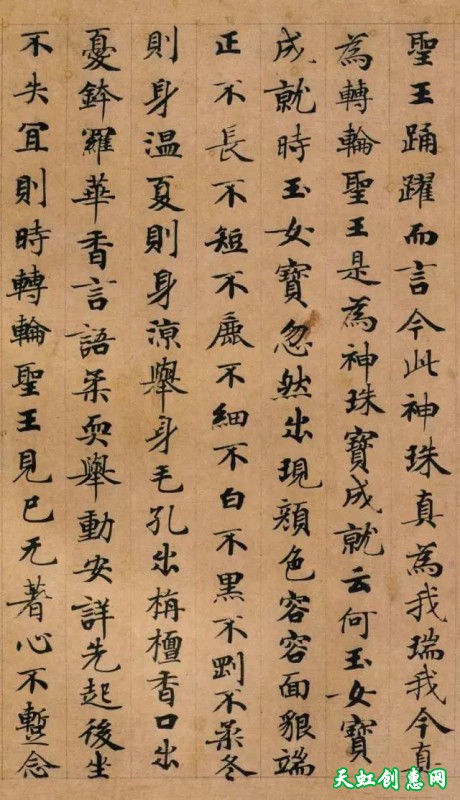 聖王踊躍而言今此神珠真為我瑞我今真
為轉輪聖王是為神珠寶成就云何玉女寶
成就時玉女寶忽然出現顏色容容面貌端
正不長不短不麁不細不白不黑不剛不柔冬
則身温夏則身涼舉身毛孔出栴檀香口出
憂鉢羅華香言語柔耎舉動安詳先起後坐
不失宜則時轉輪聖王見已无著心不蹔念
天虹创惠网